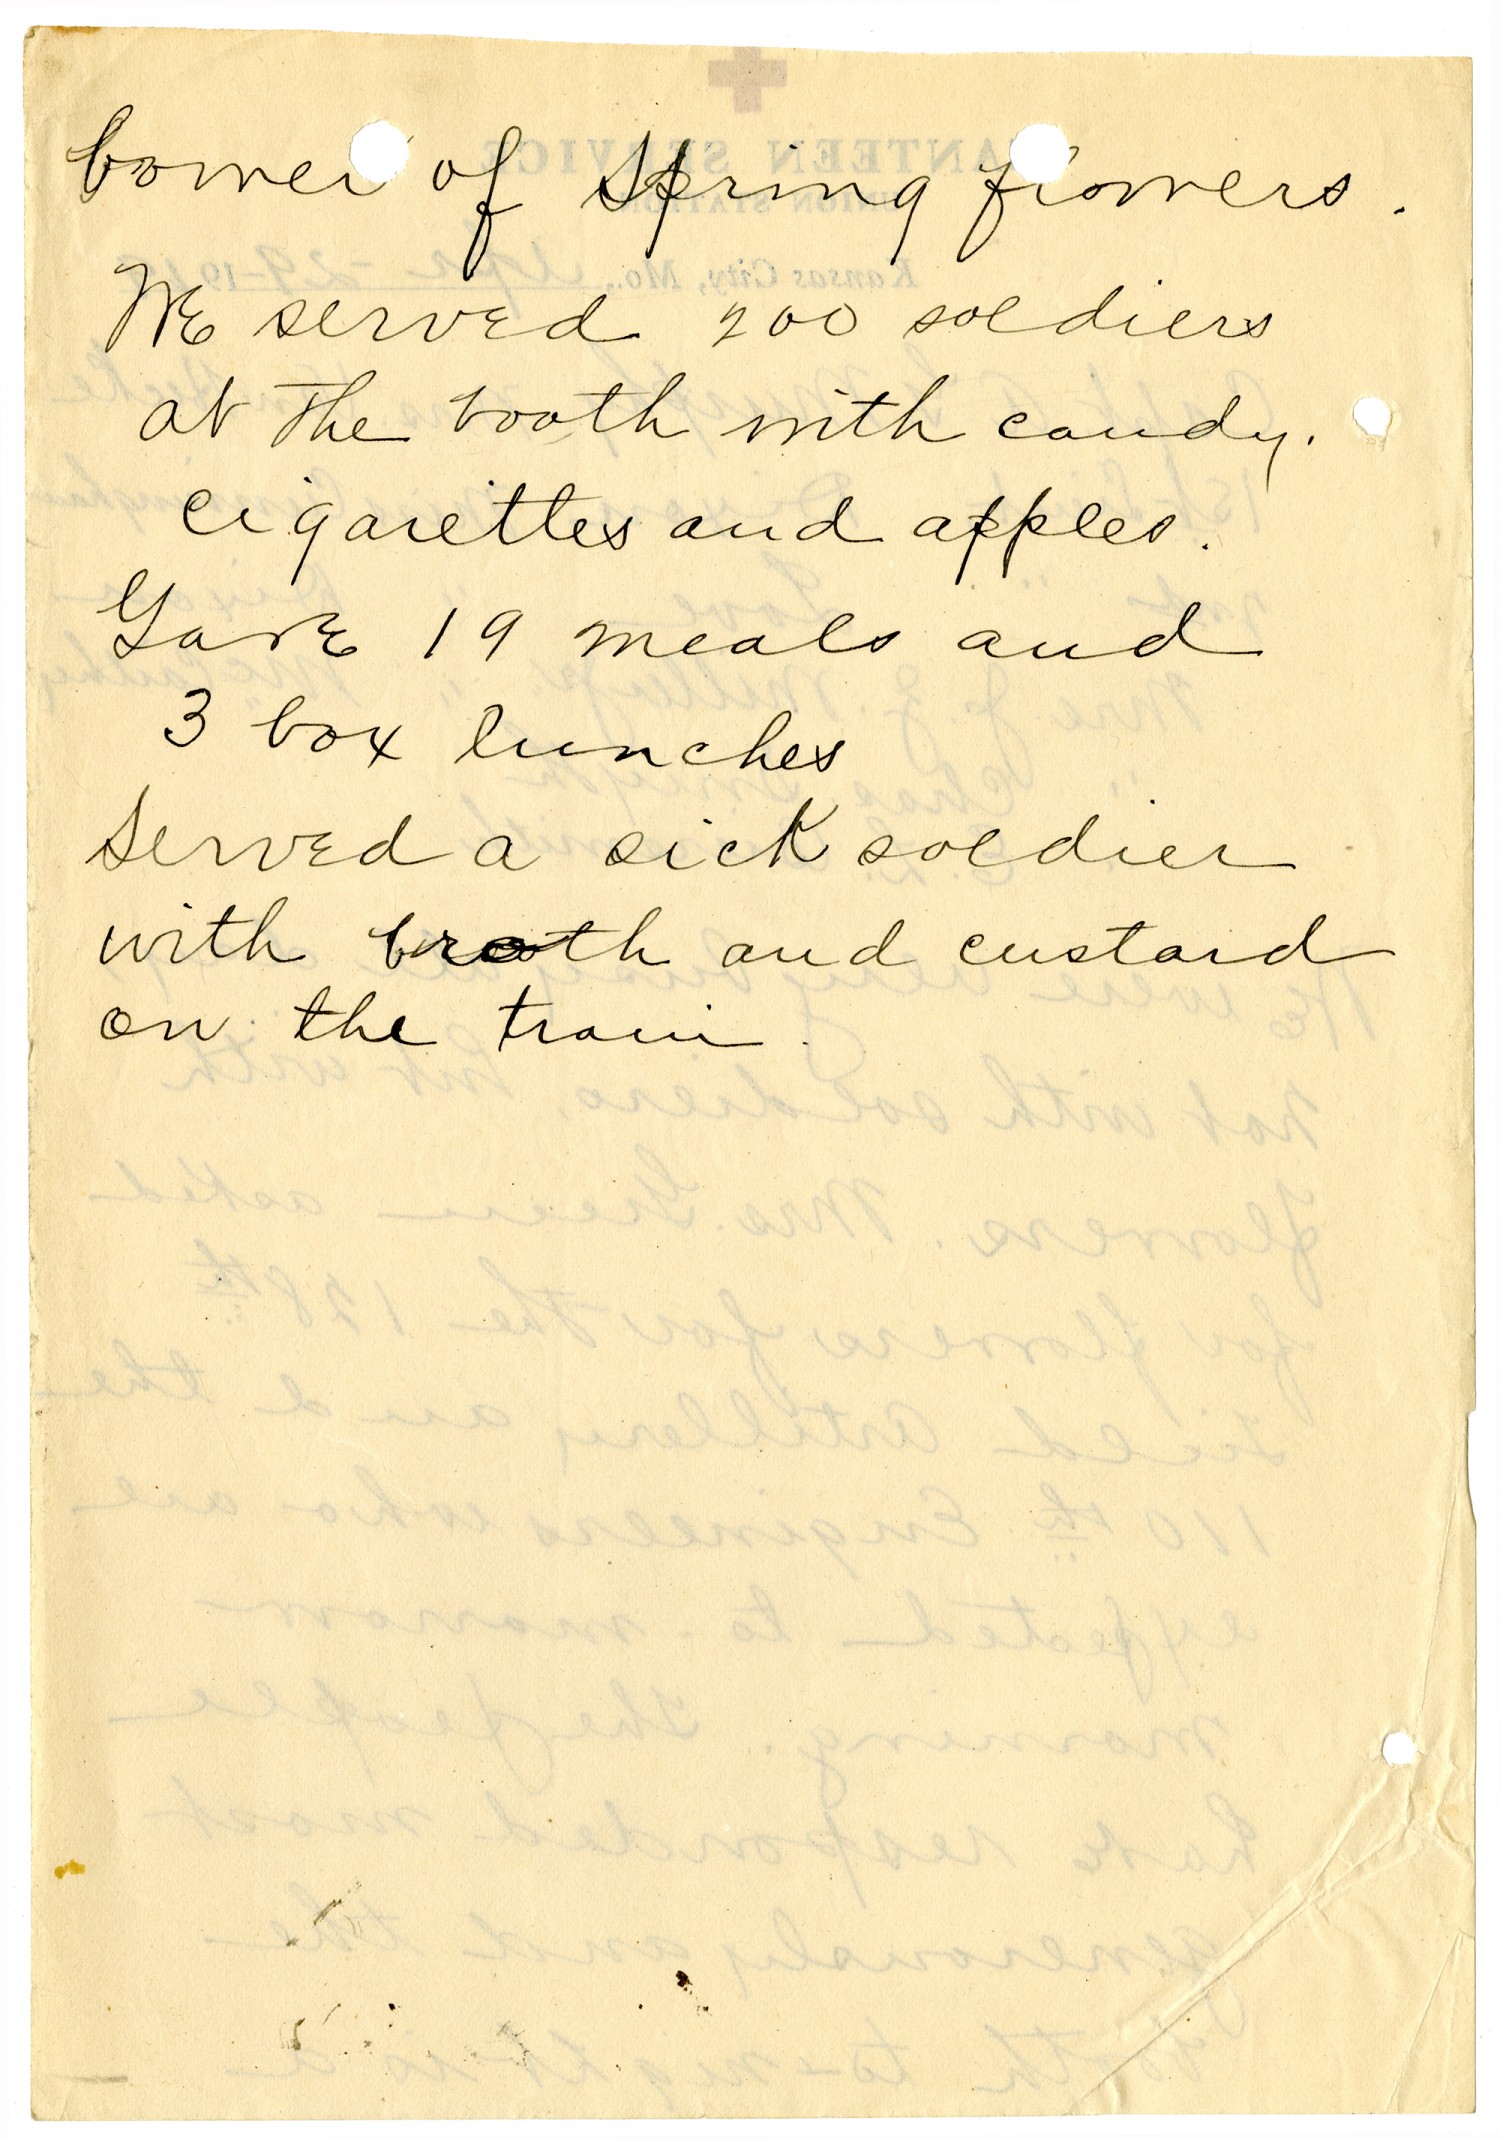 bower of Spring flowers.
We served 200 soldiers
at the booth with candy.
cigarettes and apples.
Gave 19 meals and
3 box lunches
Served a sick soldier
with broth and custard
on the train.